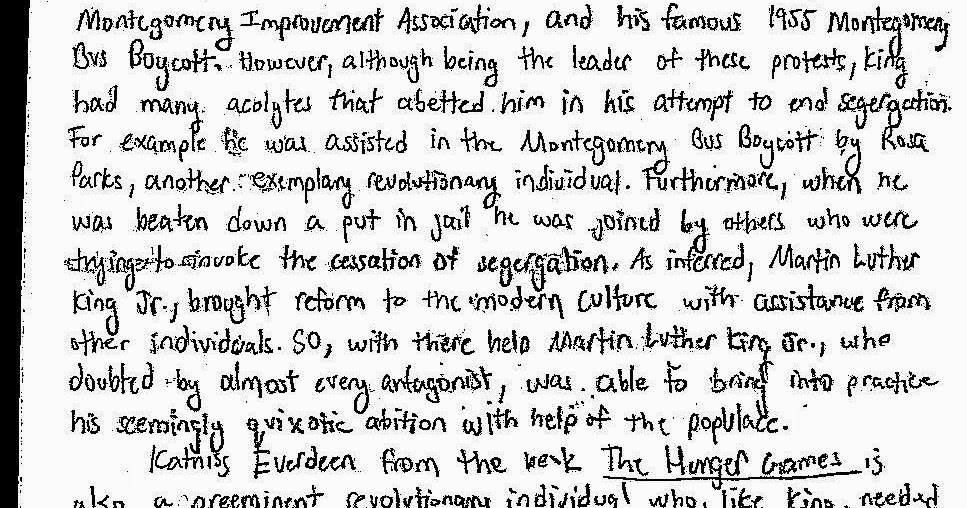 Montegomery Improvement Association, and his famous 1955 Montegomery
Bus Boycott. However, although being the leader of these protests, King
had many acolytes that abetted him in his attempt to end segergation.
For example he was assisted in the Montegomery Bus Boycott by Rosa
Parks, another exemplary revolutionary individual. Furthermore, when he
was beaten down a put in jail he was joined by others who were
trying to invoke the cessation of segergation. As inferred, Martin Luther
King Jr., brought reform to the modern culture with assistance from
other individuals. So, with there help Martin Luther King Jr., who
doubted by almost every antagonist, was able to bring into practice
his seemingly quixotic abition with help of the populace.
Katniss Everdeen from the book The Hunger Games is
also a preeminent revolutionary individual who, like King, needed